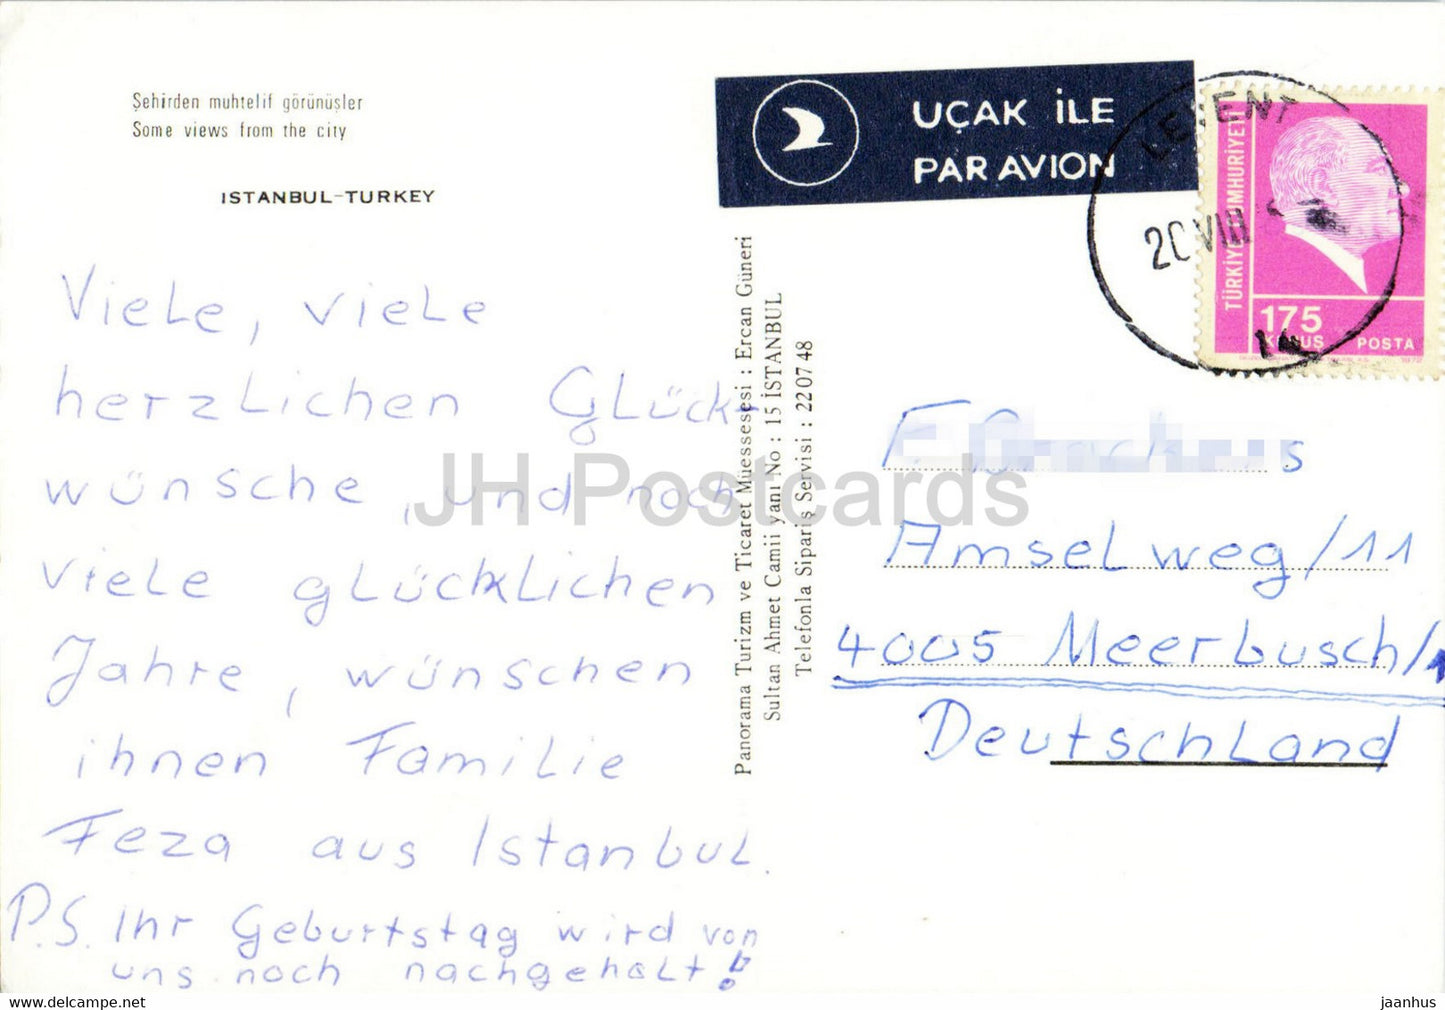 Şehirden muhtelif görünüşler
Some views from the city
ISTANBUL-TURKEY
Viele, viele
herzlichen Glück-
wünsche, und noch
viele glücklichen
Jahre, wünschen
ihnen Familie
Feza aus Istanbul.
P.S. Ihr Geburtstag wird von
uns noch nachgehalt!
Panorama Turizm ve Ticaret Müessesesi : Ercan Güneri
Sultan Ahmet Camii yanı No : 15 İSTANBUL
Telefonla Sipariş Servisi : 22 07 48
UÇAK İLE
PAR AVION
LEVENT
20 VIII
TÜRKİYE CUMHURİYETİ
175
KURUŞ POSTA
F.
Amselweg/11
4005 Meerbusch/1
Deutschland
JH Postcards
jaanhus